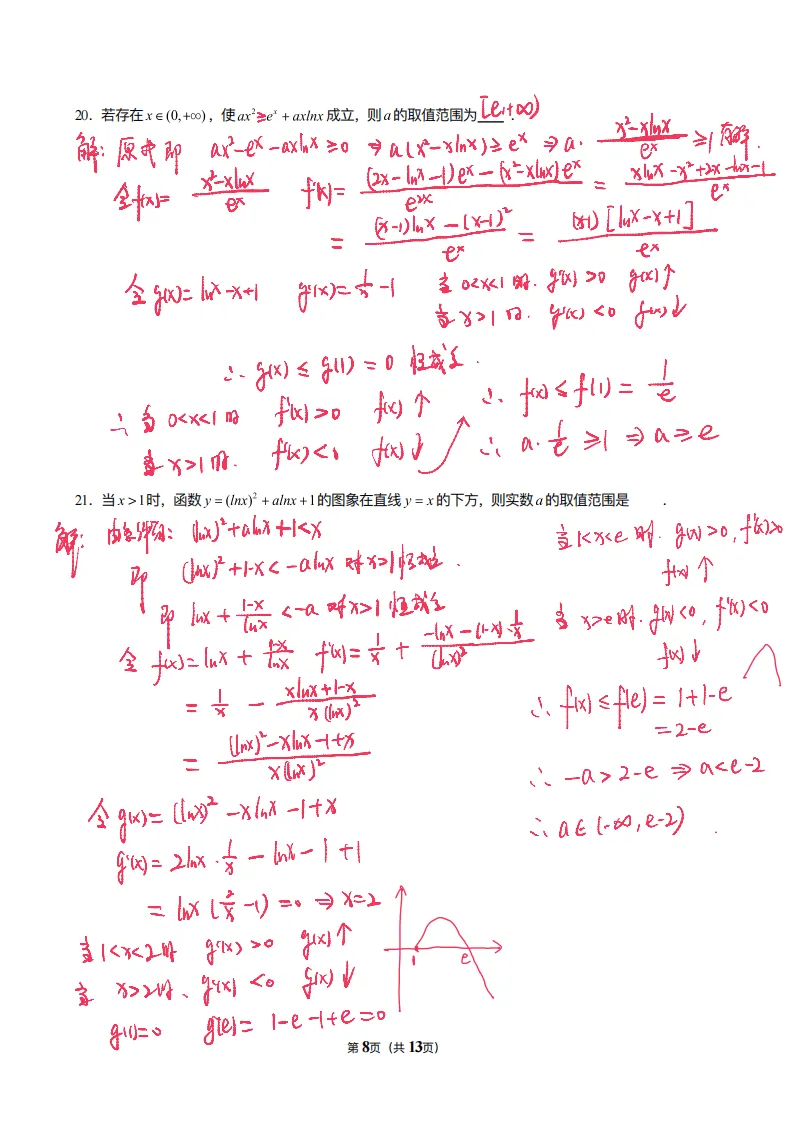 20．若存在 x∈(0,+∞)，使 ax²≥eˣ + axlnx 成立，则 a 的取值范围为 [e,+∞) ．
解: 原式即 ax²-eˣ-axlnx ≥0 ⇒ a(x²-xlnx) ≥ eˣ ⇒ a·(x²-xlnx)/eˣ ≥1 有解.
令f(x)= (x²-xlnx)/eˣ f'(x)= [(2x-lnx-1)eˣ-(x²-xlnx)eˣ]/e²ˣ = (xlnx-x²+2x-lnx-1)/eˣ
= [(x-1)lnx-(x-1)²]/eˣ = (x-1)[lnx-x+1]/eˣ
令g(x)=lnx-x+1 g'(x)=1/x-1 当0<x<1时. g'(x)>0 g(x)↑
当x>1时. g'(x)<0 f(x)↓
∴ g(x)≤g(1)=0 恒成立.
∴当0<x<1时 f'(x)>0 f(x)↑ ∴ f(x)≤f(1)=1/e
当x>1时. f'(x)<0 f(x)↓ ∴ a·1/e ≥1 ⇒ a≥e
21．当 x>1时，函数 y=(lnx)²+alnx+1的图象在直线 y=x 的下方，则实数 a 的取值范围是 ．
解: 由题知: (lnx)²+alnx+1<x
即 (lnx)²+1-x<-alnx 对x>1恒成立.
即 lnx+(1-x)/lnx<-a 对x>1恒成立
令 f(x)=lnx+(1-x)/lnx f'(x)=1/x+[-lnx-(1-x)·1/x]/(lnx)²
= 1/x - (xlnx+1-x)/x(lnx)²
= [(lnx)²-xlnx-1+x]/x(lnx)²
令g(x)=(lnx)²-xlnx-1+x
g'(x)=2lnx·1/x-lnx-1+1
= lnx(2/x-1)=0 ⇒ x=2
当1<x<2时 g'(x)>0 g(x)↑
当 x>2时、g'(x)<0 g(x)↓
g(1)=0 g(e)=1-e-1+e=0
1 e
当1<x<e时. g(x)>0, f'(x)>0
f(x)↑
当 x>e时. g(x)<0, f'(x)<0
f(x)↓
∴ f(x)≤f(e)=1+1-e
=2-e
∴ -a>2-e ⇒ a<e-2
∴ a∈(-∞,e-2)
第 8页（共 13页）